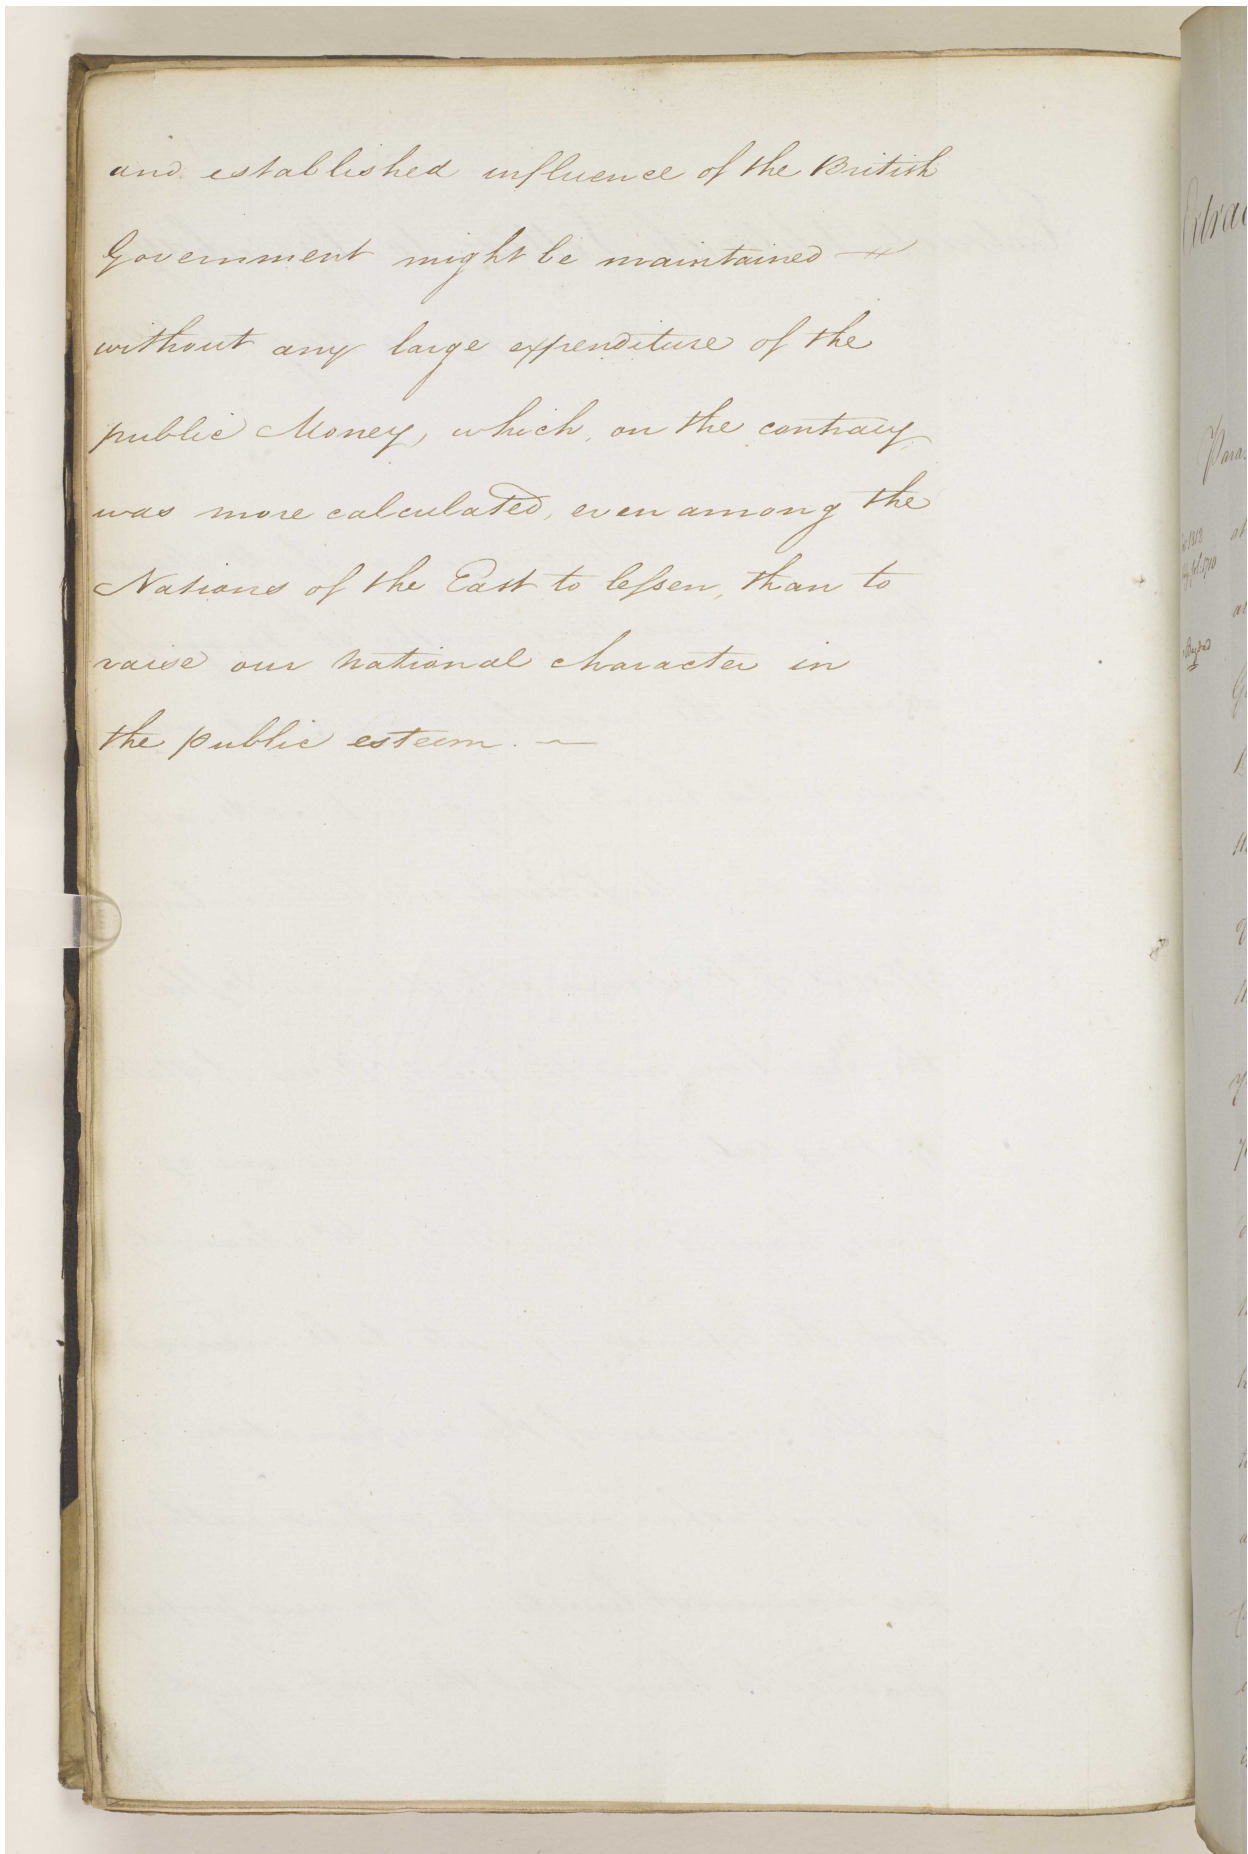 and established influence of the British
Government might be maintained —
without any large expenditure of the
public Money, which, on the contrary
was more calculated, even among the
Nations of the East to leſsen, than to
raise our national character in
the public esteem. —
Extrac
Para